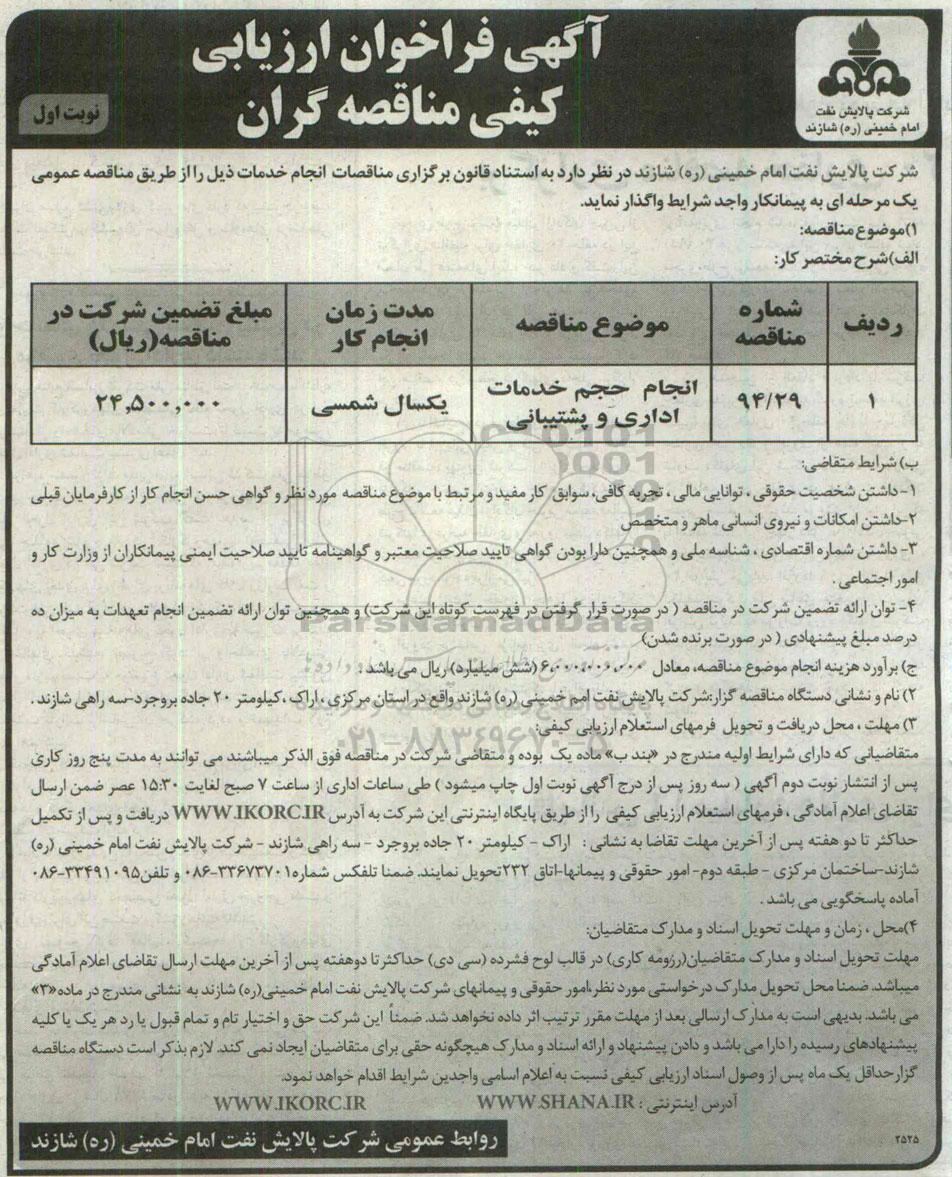 آگهی فراخوان ارزیابی
کیفی مناقصه گران
نوبت اول
شرکت پالایش نفت
امام خمینی (ره) شازند
شرکت پالایش نفت امام خمینی (ره) شازند در نظر دارد به استناد قانون برگزاری مناقصات انجام خدمات ذیل را از طریق مناقصه عمومی
یک مرحله ای به پیمانکار واجد شرایط واگذار نماید.
۱)موضوع مناقصه:
الف)شرح مختصر کار:
ردیف
شماره مناقصه
موضوع مناقصه
مدت زمان انجام کار
مبلغ تضمین شرکت در مناقصه(ریال)
۱
۹۴/۲۹
انجام حجم خدمات اداری و پشتیبانی
یکسال شمسی
۲۴,۵۰۰,۰۰۰
ب) شرایط متقاضی:
۱-داشتن شخصیت حقوقی ، توانایی مالی ، تجربه کافی، سوابق کار مفید و مرتبط با موضوع مناقصه مورد نظر و گواهی حسن انجام کار از کارفرمایان قبلی
۲-داشتن امکانات و نیروی انسانی ماهر و متخصص
۳- داشتن شماره اقتصادی ، شناسه ملی و همچنین دارا بودن گواهی تایید صلاحیت معتبر و گواهینامه تایید صلاحیت ایمنی پیمانکاران از وزارت کار و
امور اجتماعی .
۴- توان ارائه تضمین شرکت در مناقصه ( در صورت قرار گرفتن در فهرست کوتاه این شرکت) و همچنین توان ارائه تضمین انجام تعهدات به میزان ده
درصد مبلغ پیشنهادی ( در صورت برنده شدن)
ج) برآورد هزینه انجام موضوع مناقصه، معادل ۶,۰۰۰,۰۰۰,۰۰۰ (شش میلیارد) ریال می باشد .
۲) نام و نشانی دستگاه مناقصه گزار:شرکت پالایش نفت امام خمینی (ره) شازند واقع در استان مرکزی ، اراک ، کیلومتر ۲۰ جاده بروجرد-سه راهی شازند .
۳) مهلت ، محل دریافت و تحویل فرمهای استعلام ارزیابی کیفی:
متقاضیانی که دارای شرایط اولیه مندرج در «بند ب» ماده یک بوده و متقاضی شرکت در مناقصه فوق الذکر میباشند می توانند به مدت پنج روز کاری
پس از انتشار نوبت دوم آگهی ( سه روز پس از درج آگهی نوبت اول چاپ میشود ) طی ساعات اداری از ساعت ۷ صبح لغایت ۱۵:۳۰ عصر ضمن ارسال
تقاضای اعلام آمادگی ، فرمهای استعلام ارزیابی کیفی را از طریق پایگاه اینترنتی این شرکت به آدرس WWW.IKORC.IR دریافت و پس از تکمیل
حداکثر تا دو هفته پس از آخرین مهلت تقاضا به نشانی : اراک - کیلومتر ۲۰ جاده بروجرد - سه راهی شازند - شرکت پالایش نفت امام خمینی (ره)
شازند-ساختمان مرکزی - طبقه دوم- امور حقوقی و پیمانها-اتاق ۲۳۲تحویل نمایند. ضمنا تلفکس شماره۳۳۶۷۳۷۰۱-۰۸۶ و تلفن۳۳۴۹۱۰۹۵-۰۸۶
آماده پاسخگویی می باشد .
۴)محل ، زمان و مهلت تحویل اسناد و مدارک متقاضیان:
مهلت تحویل اسناد و مدارک متقاضیان(رزومه کاری) در قالب لوح فشرده (سی دی) حداکثر تا دوهفته پس از آخرین مهلت ارسال تقاضای اعلام آمادگی
میباشد. ضمنا محل تحویل مدارک درخواستی مورد نظر،امور حقوقی و پیمانهای شرکت پالایش نفت امام خمینی(ره) شازند به نشانی مندرج در ماده«۳»
می باشد. بدیهی است به مدارک ارسالی بعد از مهلت مقرر ترتیب اثر داده نخواهد شد. ضمنا این شرکت حق و اختیار تام و تمام قبول یا رد هر یک یا کلیه
پیشنهادهای رسیده را دارا می باشد و دادن پیشنهاد و ارائه اسناد و مدارک هیچگونه حقی برای متقاضیان ایجاد نمی کند. لازم بذکر است دستگاه مناقصه
گزارحداقل یک ماه پس از وصول اسناد ارزیابی کیفی نسبت به اعلام اسامی واجدین شرایط اقدام خواهد نمود.
آدرس اینترنتی : WWW.SHANA.IR WWW.IKORC.IR
روابط عمومی شرکت پالایش نفت امام خمینی (ره) شازند
۲۵۲۵
ParsNamadData
۰۲۱-۸۸۳۴۹۶۷۰-۵